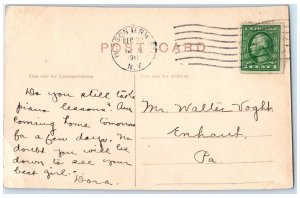 N.Y.
POST CARD
This side for Correspondence
This side for Address
1 CENT 1
Do you still take
piano lessons? Am
coming home tomorrow
for a few days. No
doubt you will be
down to see your
best girl."
Dora.
Mr. Walter Voght
Enhaut,
Pa.